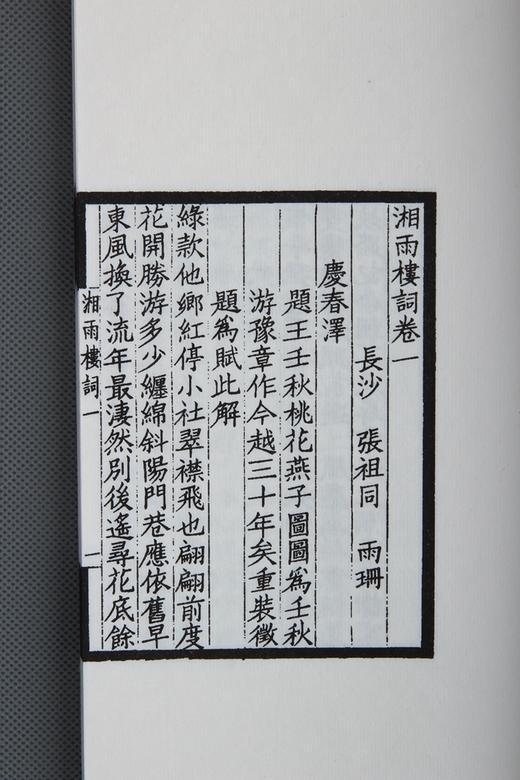 湘雨樓詞卷一
長沙 張祖同 雨珊
慶春澤
題王壬秋桃花燕子圖圖爲壬秋
游豫章作今越三十年矣重裝徵
題爲賦此解
綠款他鄉紅停小社翠襟飛也翩翩前度
花開勝游多少纏綿斜陽門巷應依舊早
東風換了流年最淒然別後遙尋花底餘
湘雨樓詞一
一